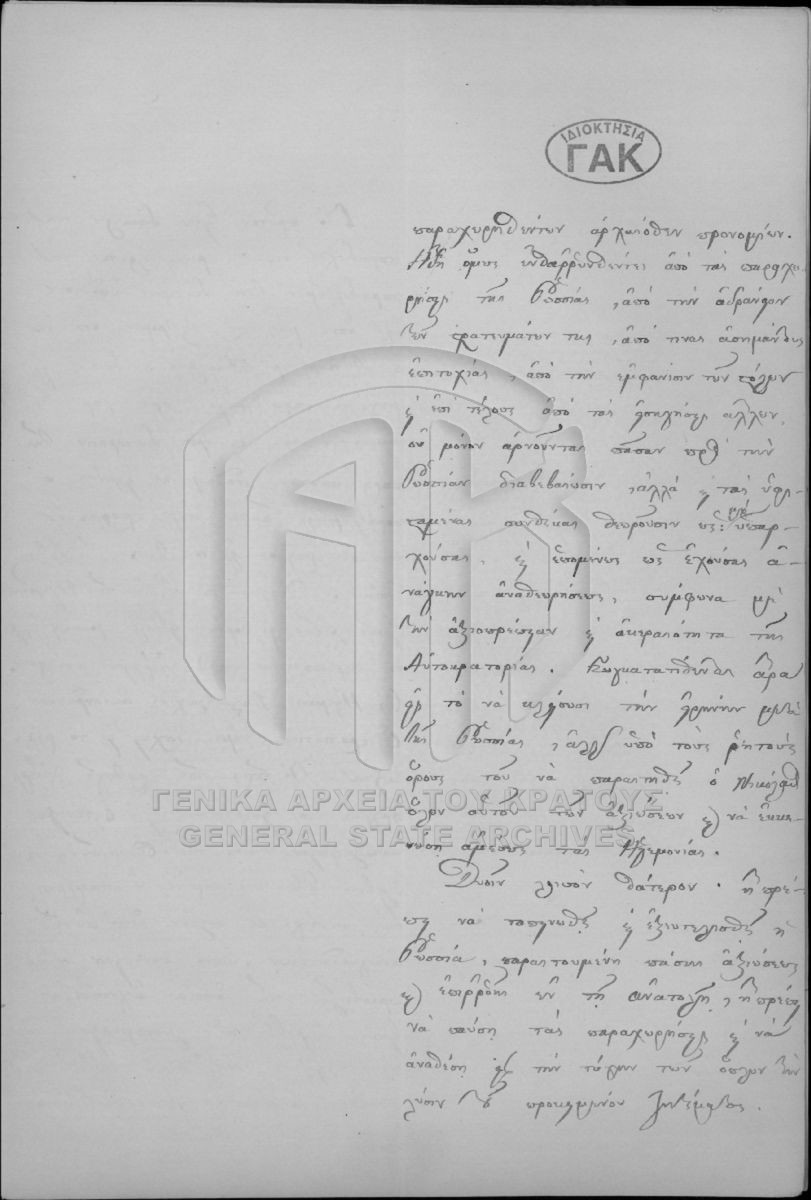 ΙΔΙΟΚΤΗΣΙΑ
ΓΑΚ
παραχωρηθέντων ἀρχαιόθεν προνομίων.
Ἤδη ὅμως ἐνθαρρυνθέντες ἀπὸ τὰς παραχω-
ρήσεις τῆς Ῥωσσίας, ἀπὸ τὴν ἀδράνειαν
τῶν στρατευμάτων της, ἀπό τινας ἀσημάντους
ἐπιτυχίας, ἀπὸ τὴν ἐμφάνισιν τῶν στόλων
καὶ ἐπὶ τέλους ἀπὸ τὰς εἰσηγήσεις ἄλλων,
οὐ μόνον ἀρνοῦνται πᾶσαν πρὸς τὴν
Ῥωσσίαν διαβεβαίωσιν, ἀλλὰ καὶ τὰς ὑφι-
σταμένας συνθήκας θεωροῦσιν ὡς μὴ ὑπαρ-
χούσας, καὶ ἑπομένως ὡς ἐχούσας ἀ-
νάγκην ἀναθεωρήσεως, σύμφωνα μὲ
τὴν ἀξιοπρέπειαν καὶ ἀκεραιότητα τῆς
Αὐτοκρατορίας. Συγκατατίθενται ἄρα
εἰς τὸ νὰ κλείσουσι τὴν εἰρήνην μετὰ
τῆς Ῥωσσίας, ἀλλ' ὑπὸ τοὺς ῥητοὺς
ὅρους τοῦ νὰ παραιτηθῇ ὁ Νικόλαος
ὅλων αὐτοῦ τῶν ἀξιώσεων καὶ νὰ ἐκκε-
νώσῃ ἀμέσως τὰς Ἡγεμονίας.
Δυοῖν λοιπὸν θάτερον. ἢ πρέ-
πει νὰ ταπεινωθῇ καὶ ἐξευτελισθῇ ἡ
Ῥωσσία, παραιτουμένη πάσης ἀξιώσεως
καὶ ἐπιρροῆς ἐν τῇ Ἀνατολῇ, ἢ πρέπει
νὰ παύσῃ τὰς παραχωρήσεις καὶ νὰ
ἀναθέσῃ εἰς τὴν τύχην τῶν ὅπλων τὴν
λύσιν τοῦ προκειμένου ζητήματος.
ΓΕΝΙΚΑ ΑΡΧΕΙΑ ΤΟΥ ΚΡΑΤΟΥΣ
GENERAL STATE ARCHIVES